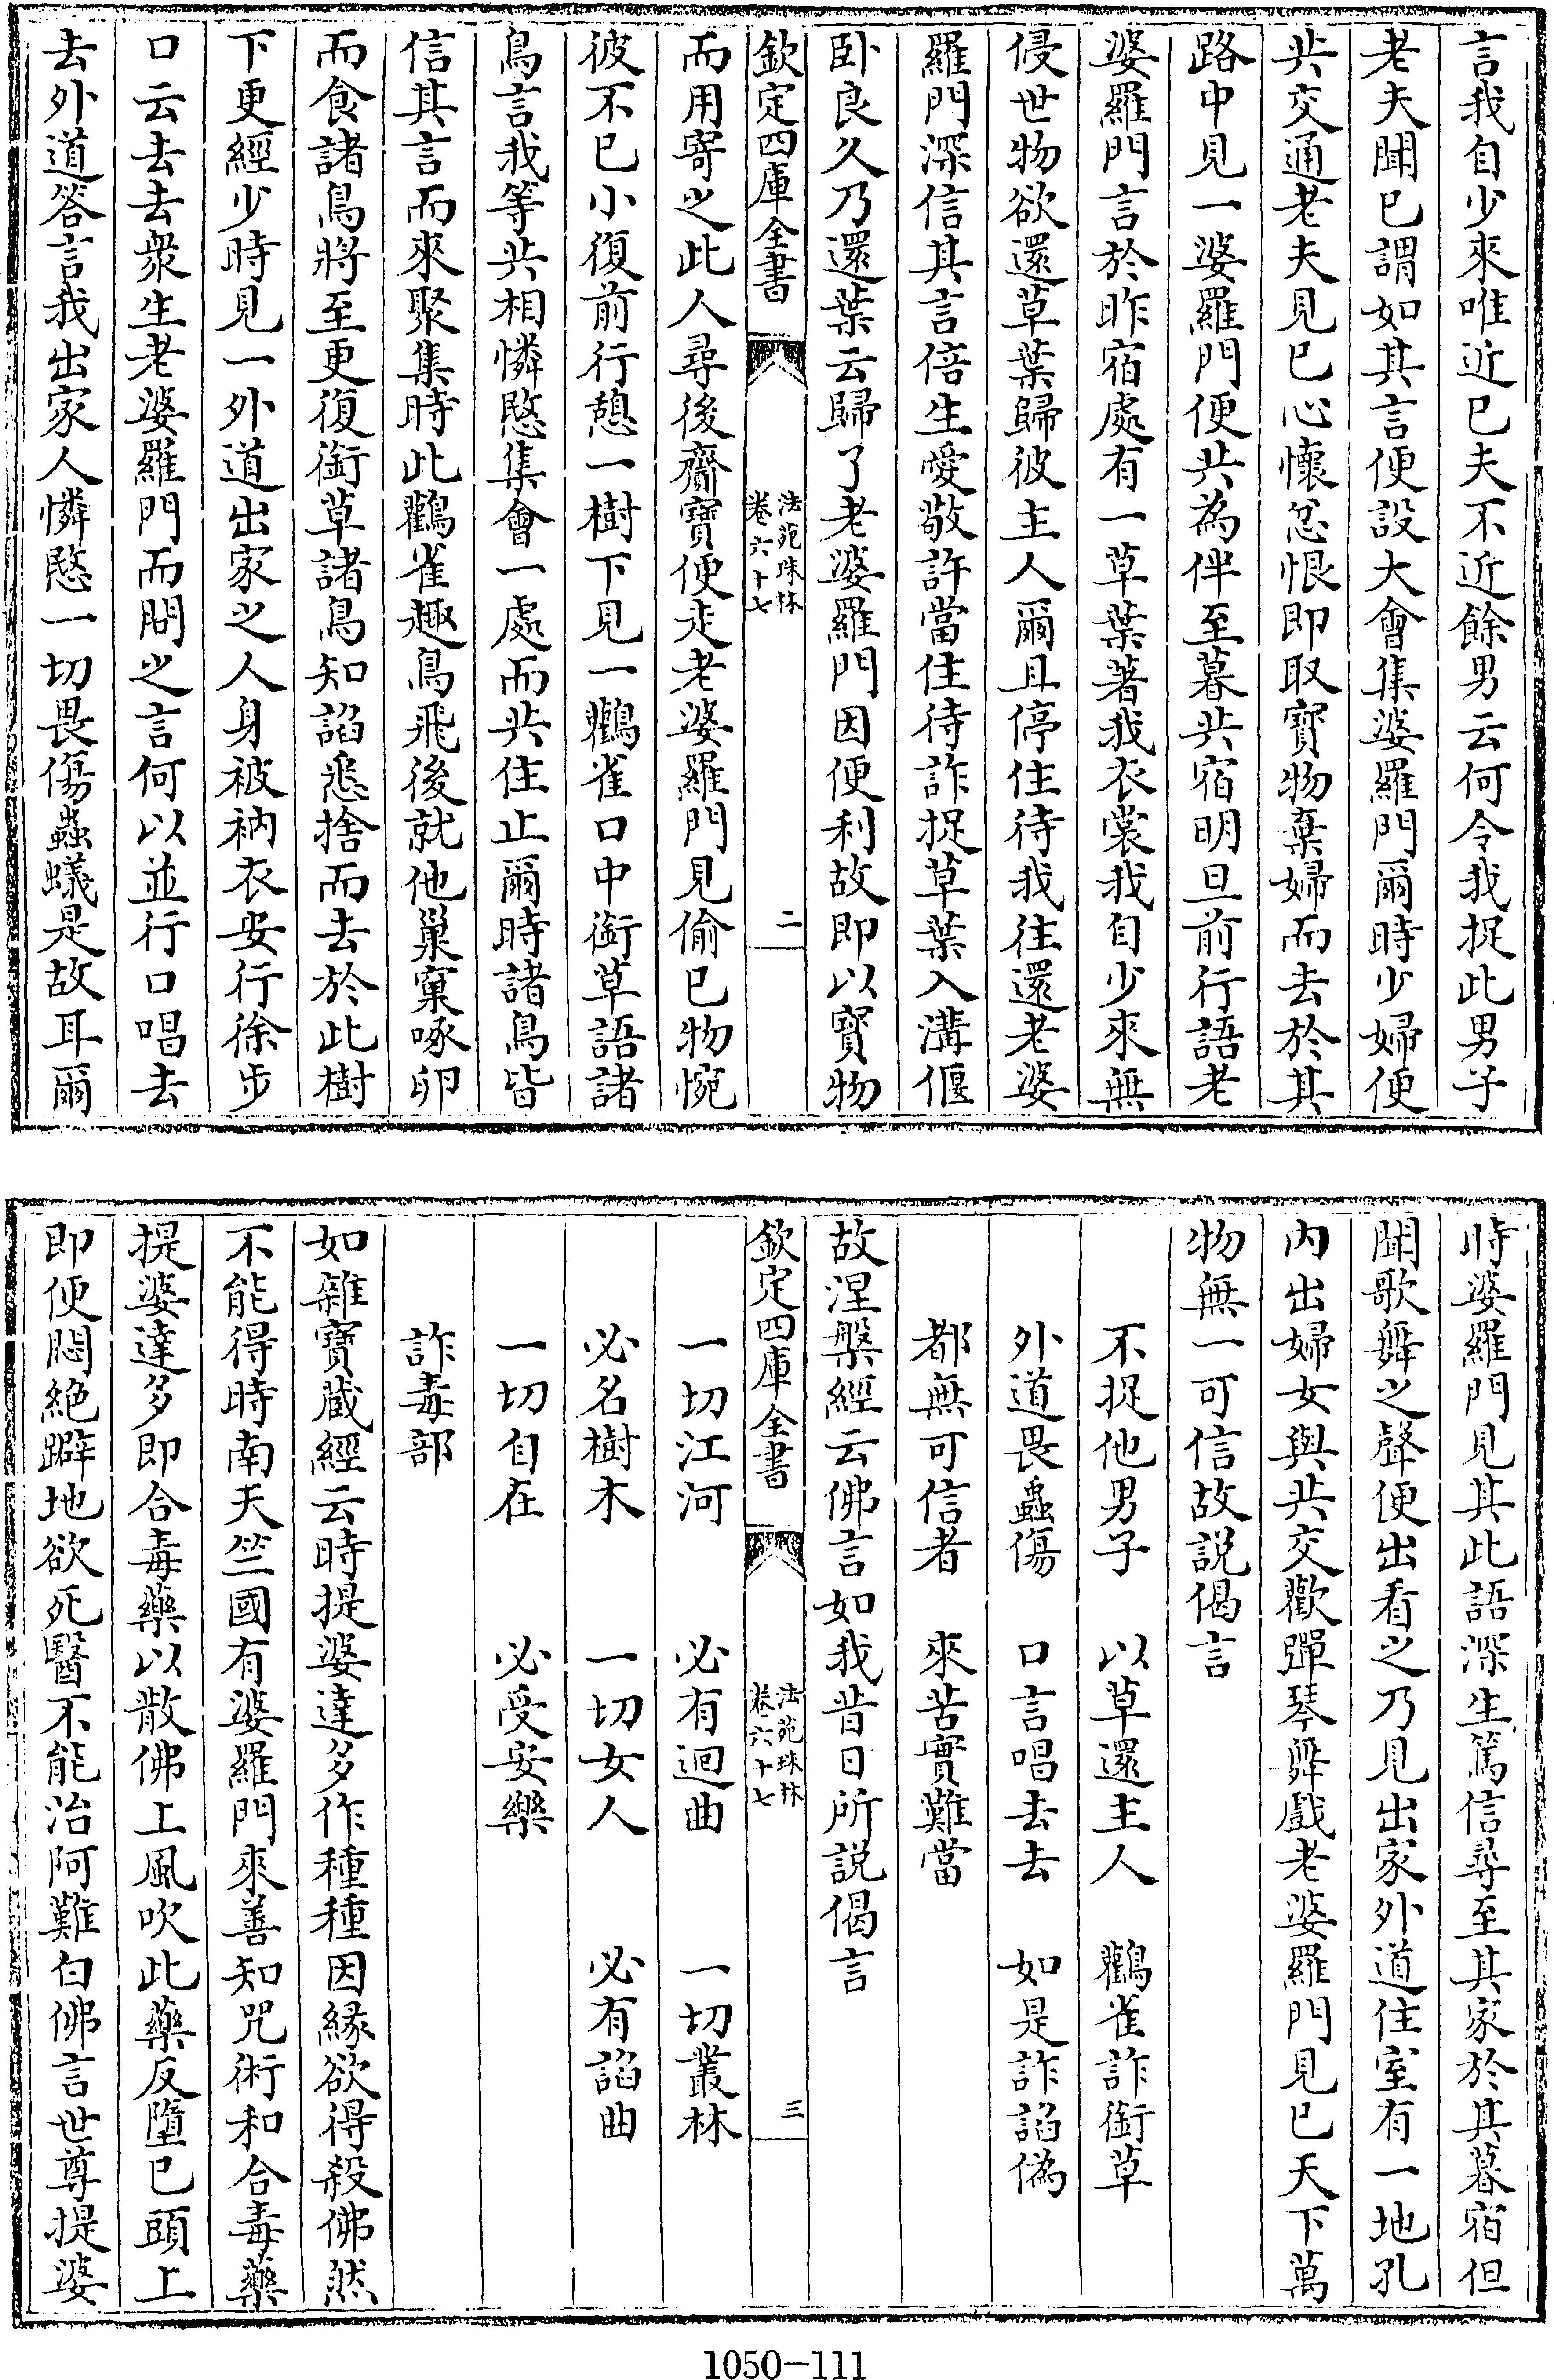 言我自少來唯近已夫不近餘男云何令我捉此男子
老夫聞已謂如其言便設大會集婆羅門爾時少婦便
共交通老夫見已心懷忿恨即取寳物棄婦而去於其
路中見一婆羅門便共為伴至暮共宿明旦前行語老
婆羅門言於昨宿處有一草葉著我衣裳我自少來無
侵世物欲還草葉歸彼主人爾且停住待我往還老婆
羅門深信其言倍生愛敬許當住待詐捉草葉入溝偃
卧良久乃還葉云歸了老婆羅門因便利故即以寳物
欽定四庫全書
法苑珠林
卷六十七
二
而用寄之此人尋後齎寳便走老婆羅門見偷已物惋
彼不已小復前行憩一樹下見一鸛雀口中銜草語諸
鳥言我等共相憐愍集會一處而共住止爾時諸鳥皆
信其言而來聚集時此鸛雀趣鳥飛後就他巢窠啄卵
而食諸鳥將至更復銜草諸鳥知諂悉捨而去於此樹
下更經少時見一外道出家之人身被衲衣安行徐步
口云去去衆生老婆羅門而問之言何以並行口唱去
去外道答言我出家人憐愍一切畏傷蟲蟻是故耳爾
時婆羅門見其此語深生篤信尋至其家於其暮宿但
聞歌舞之聲便出看之乃見出家外道住室有一地孔
内出婦女與共交歡彈琴舞戲老婆羅門見已天下萬
物無一可信故説偈言
不捉他男子 以草還主人 鸛雀詐銜草
外道畏蟲傷 口言唱去去 如是詐諂偽
都無可信者 來苦實難當
故涅槃經云佛言如我昔日所説偈言
欽定四庫全書
法苑珠林
卷六十七
三
一切江河 必有迴曲 一切叢林
必名樹木 一切女人 必有諂曲
一切自在 必受安樂
詐毒部
如雜寳藏經云時提婆達多作種種因緣欲得殺佛然
不能得時南天竺國有婆羅門來善知咒術和合毒藥
提婆達多即合毒藥以散佛上風吹此藥反墮已頭上
即便悶絶躃地欲死醫不能治阿難白佛言世尊提婆
1050-111